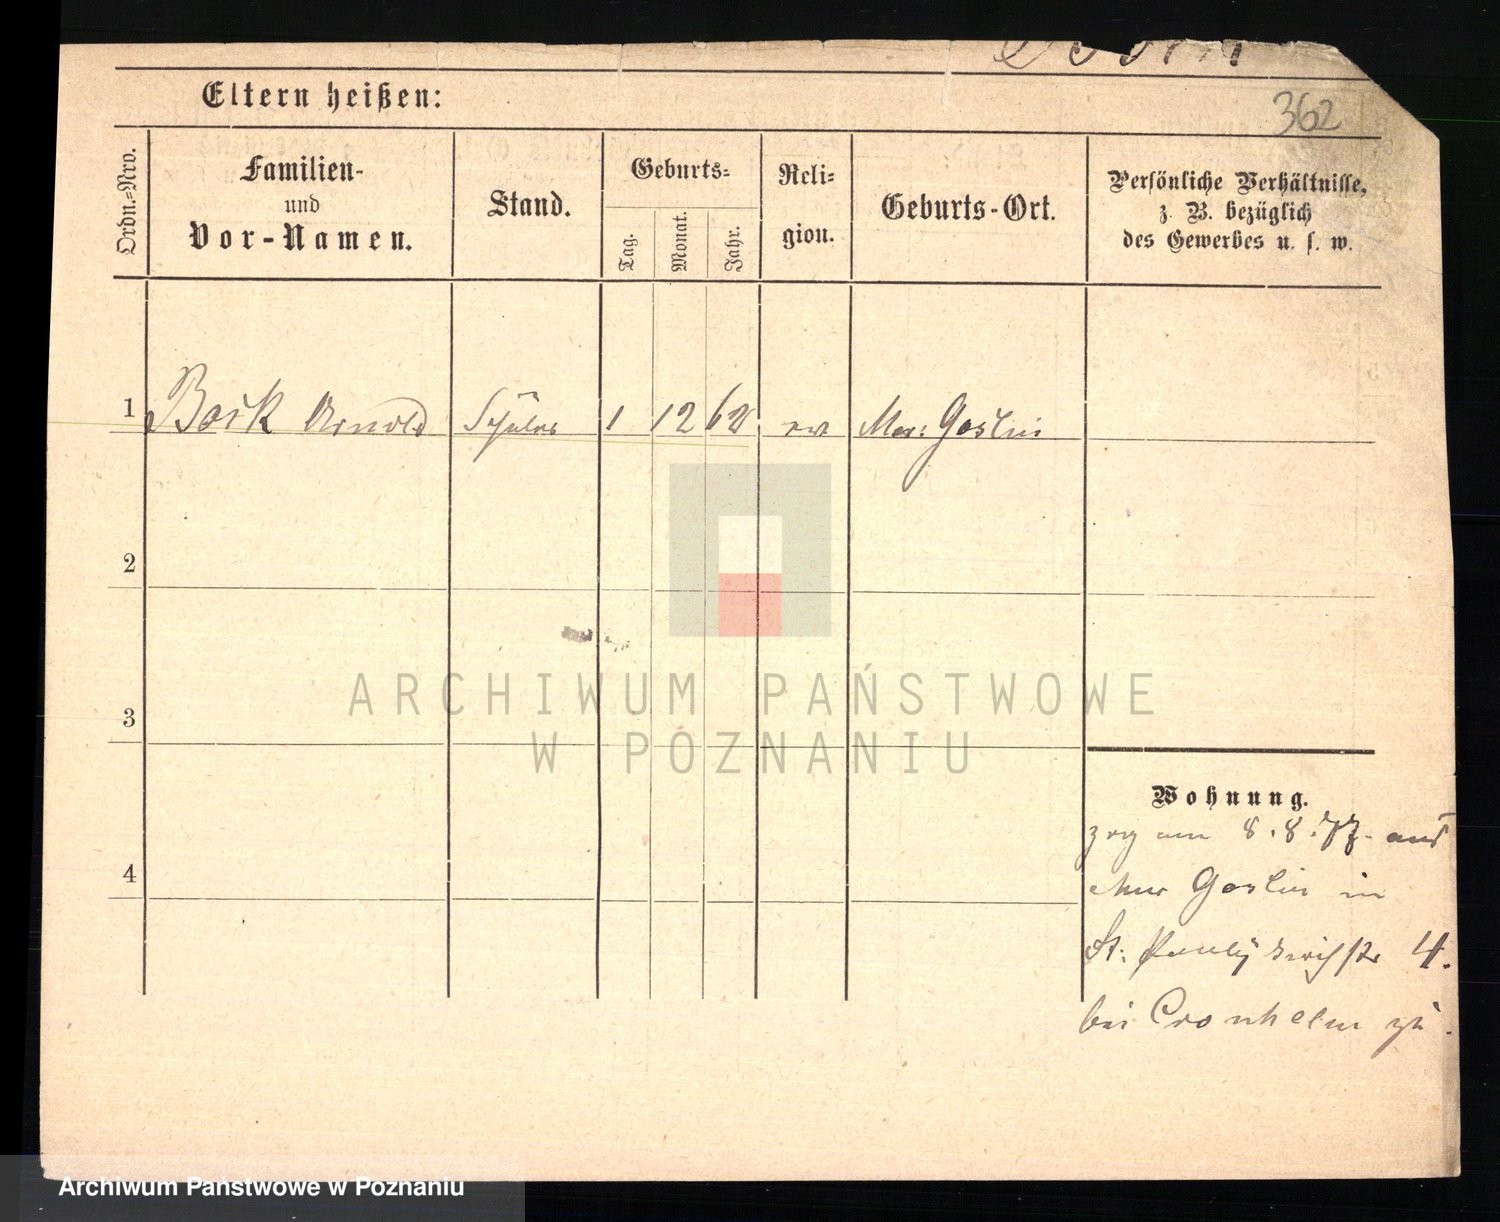 362
Eltern heißen:
Ordn.=Nro.
Familien-
und
Vor-Namen.
Stand.
Geburts=
Tag.
Monat.
Jahr.
Reli=
gion.
Geburts-Ort.
Persönliche Verhältnisse,
z. B. bezüglich
des Gewerbes u. s. w.
1 Arnold Schüler 1 12 62 ev Goslin
2
3
4
Wohnung.
zog am 8.8.77. aus
Mur Goslin in
St: 4.
bei Cronhelm zu.
ARCHIWUM PAŃSTWOWE
W POZNANIU
Archiwum Państwowe w Poznaniu